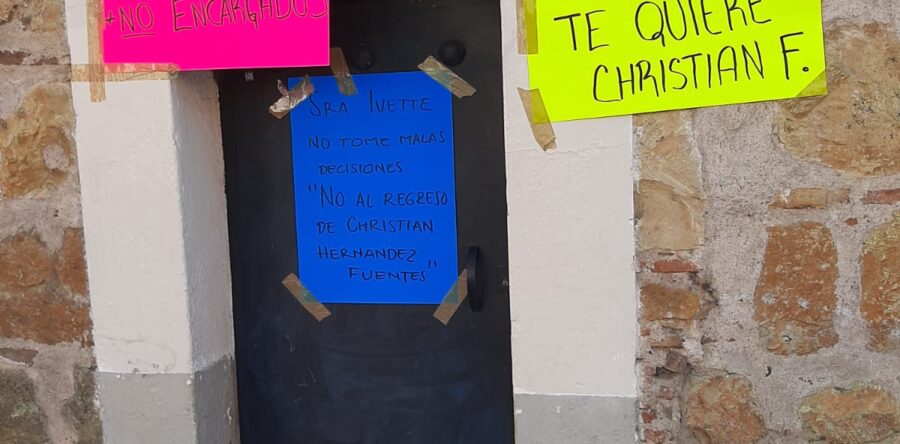 +NO ENCARGADOS
TE QUIERE
CHRISTIAN F.
SRA IVETTE
NO TOME MALAS
DECISIONES
"NO AL REGRESO
DE CHRISTIAN
HERNANDEZ
FUENTES"